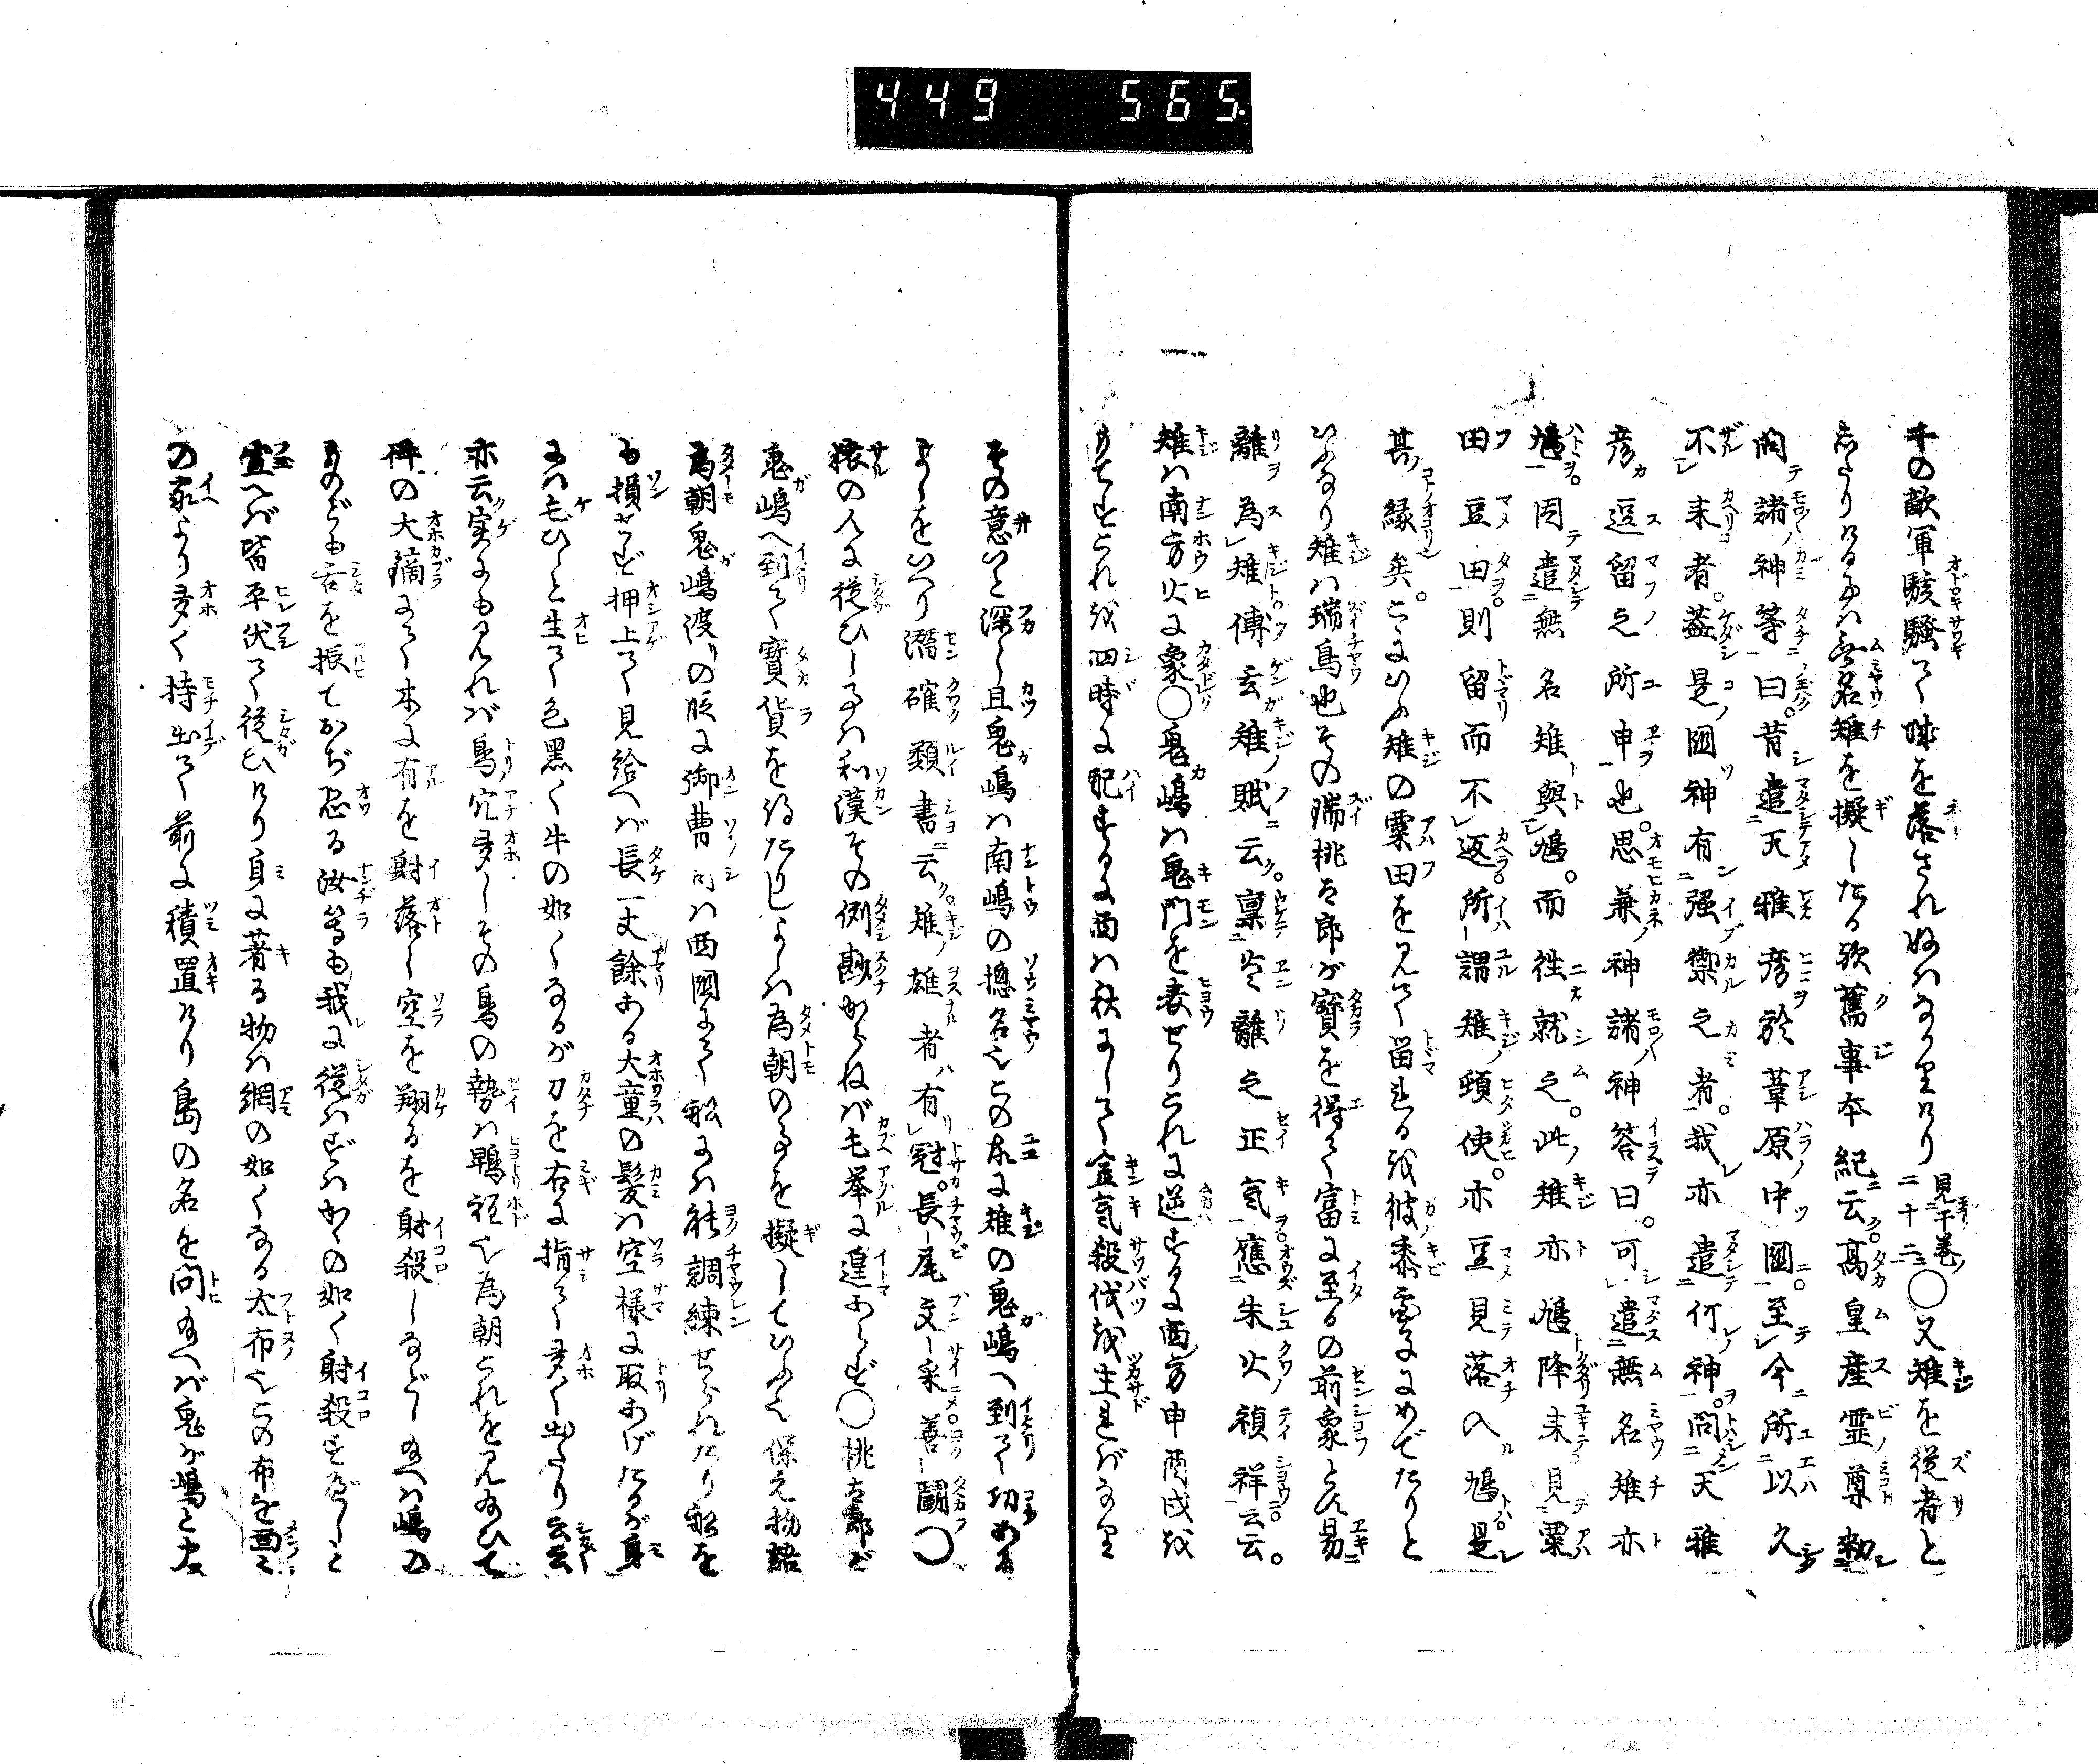 449 565
千の敵軍駭騒て城を落されぬはなかりけり見于巻ノ二十二〇又雉を従者と
したりけるは無名雉を擬したる歟舊事本紀云高皇産霊尊勅
問諸神等曰昔遣天雅彦於葦原中國至今所以久
不来者蓋是國神有强禦之者我亦遣何神問天雅
彦逗留之所申也思兼神諸神答曰可遣無名雉亦
鳩因遣無名雉與鳩而徃就之此雉亦鳩降来見粟
田豆田則留而不返所謂雉頓使亦豆見落入鳩是
其縁矣こゝにいふ雉の粟田を見て留まる彼黍團子にめでたりと
いふなり雉は瑞鳥也その瑞桃太郎が寶を得て富に至るの前象とす易
離為雉傅玄雉賦云稟炎離之正氣應朱火禎祥云云
雉は南方火に象〇鬼嶋は鬼門を表せりこれに逆するに西方申酉戌を
もてすこれを四時に配するに西は秋にして金氣殺伐を主ればなり
その意いと深し且鬼嶋は南嶋の摠名也この故に雉の鬼嶋へ到て功ある
よしをいへり潛確類書云雉雄者有冠長尾文采善鬭〇
猿の人に従ひし事は和漢その例尠からねば毛挙に遑あらず〇桃太郎が
鬼嶋へ到て寶貨を得たりしよしは為朝の事を擬していふ也保元物語
為朝鬼嶋渡りの段に御曹司は西國にて舩には能調練せられたり舩を
も損せず押上て見給へば長一丈餘ある大童の髪は空様に取あげたるが身
には毛ひしと生て色黒く牛の如くなるが刀を右に指て多く出たり云云
亦云実にも見れば鳥穴多しその鳥の勢は鵯程也為朝これを見給ひて
件の大鏑にて木に有を射落し空を翔るを射殺しなどし給へば嶋の
ものども舌を振ておぢ恐る汝等も我に従はずはかくの如く射殺すべしと
宣へば皆平伏て従ひけり身に著る物は網の如くなる太布也この布を面々
の家より多く持出て前に積置けり島の名を問給へば鬼が嶋と申